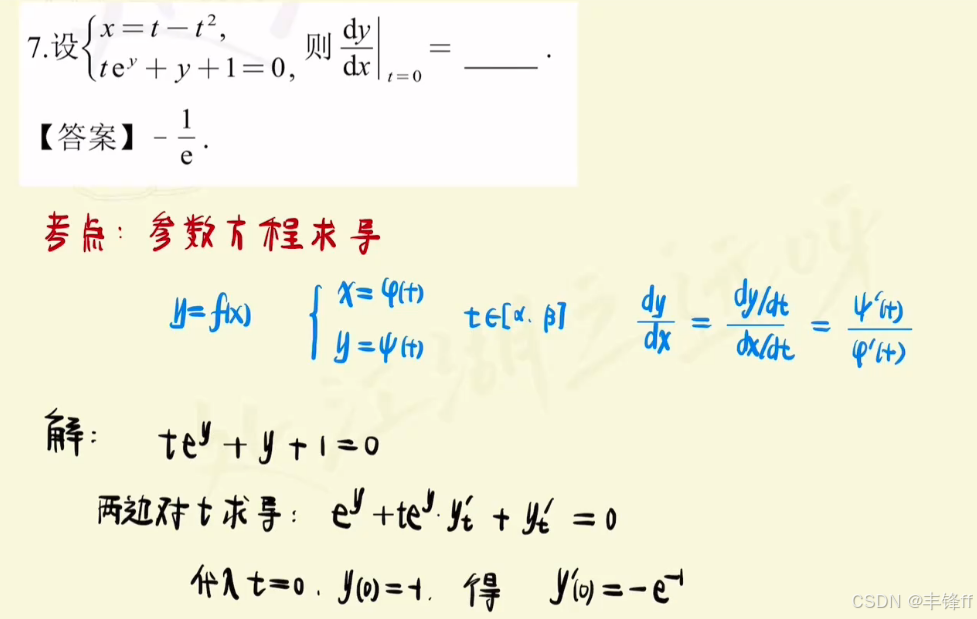 7.设{x=t-t²,
te^y+y+1=0, 则 dy/dx|_{t=0} = ____ .
【答案】 -1/e .
考点: 参数方程求导
y=f(x) {x=φ(t) y=ψ(t) t∈[α, β] dy/dx = (dy/dt)/(dx/dt) = ψ'(t)/φ'(t)
解: te^y + y + 1 = 0
两边对 t 求导: e^y + te^y·y't + y't = 0
代入 t=0, y(0)=-1, 得 y'(0)=-e^-1
CSDN @丰锋ff